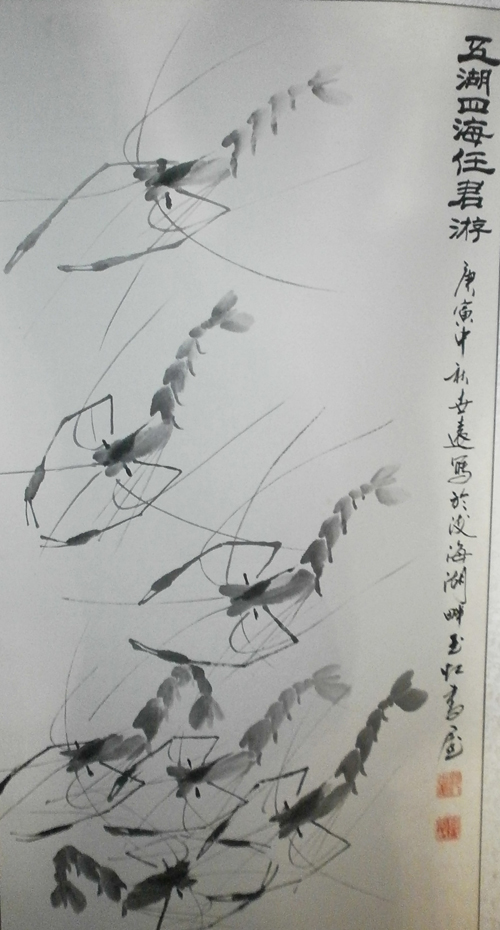 五湖四海任君游
庚寅中秋世遠寫於海湖畔玉虹書屋